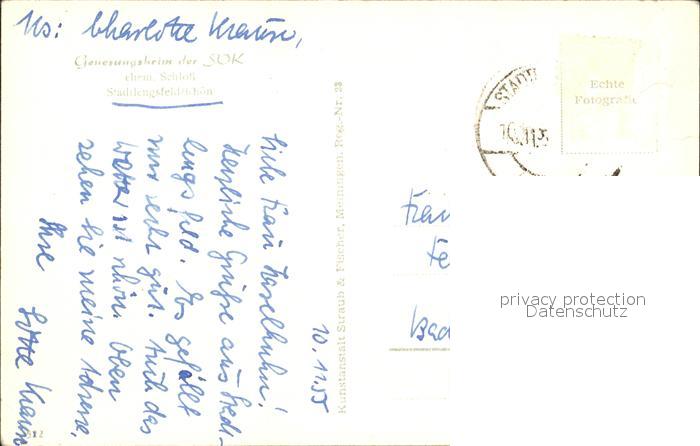 Abs: Charlotte Krause,
Genesungsheim der SVK
ehem. Schloß
Stadtlengsfeld/Rhön
10. 11 55
Liebe Frau Haselhuhn!
Herzliche Grüße aus Stadt-
lengsfeld. Es gefällt
mir sehr gut. Auch das
Wetter ist schön. Oben
sehen Sie meine Adresse.
Ihre
Lotte Krause
Kunstanstalt Straub & Fischer, Meiningen. Reg.-Nr. 23
STADT
10.11.5
Echte
Fotografie
Bad
privacy protection
Datenschutz